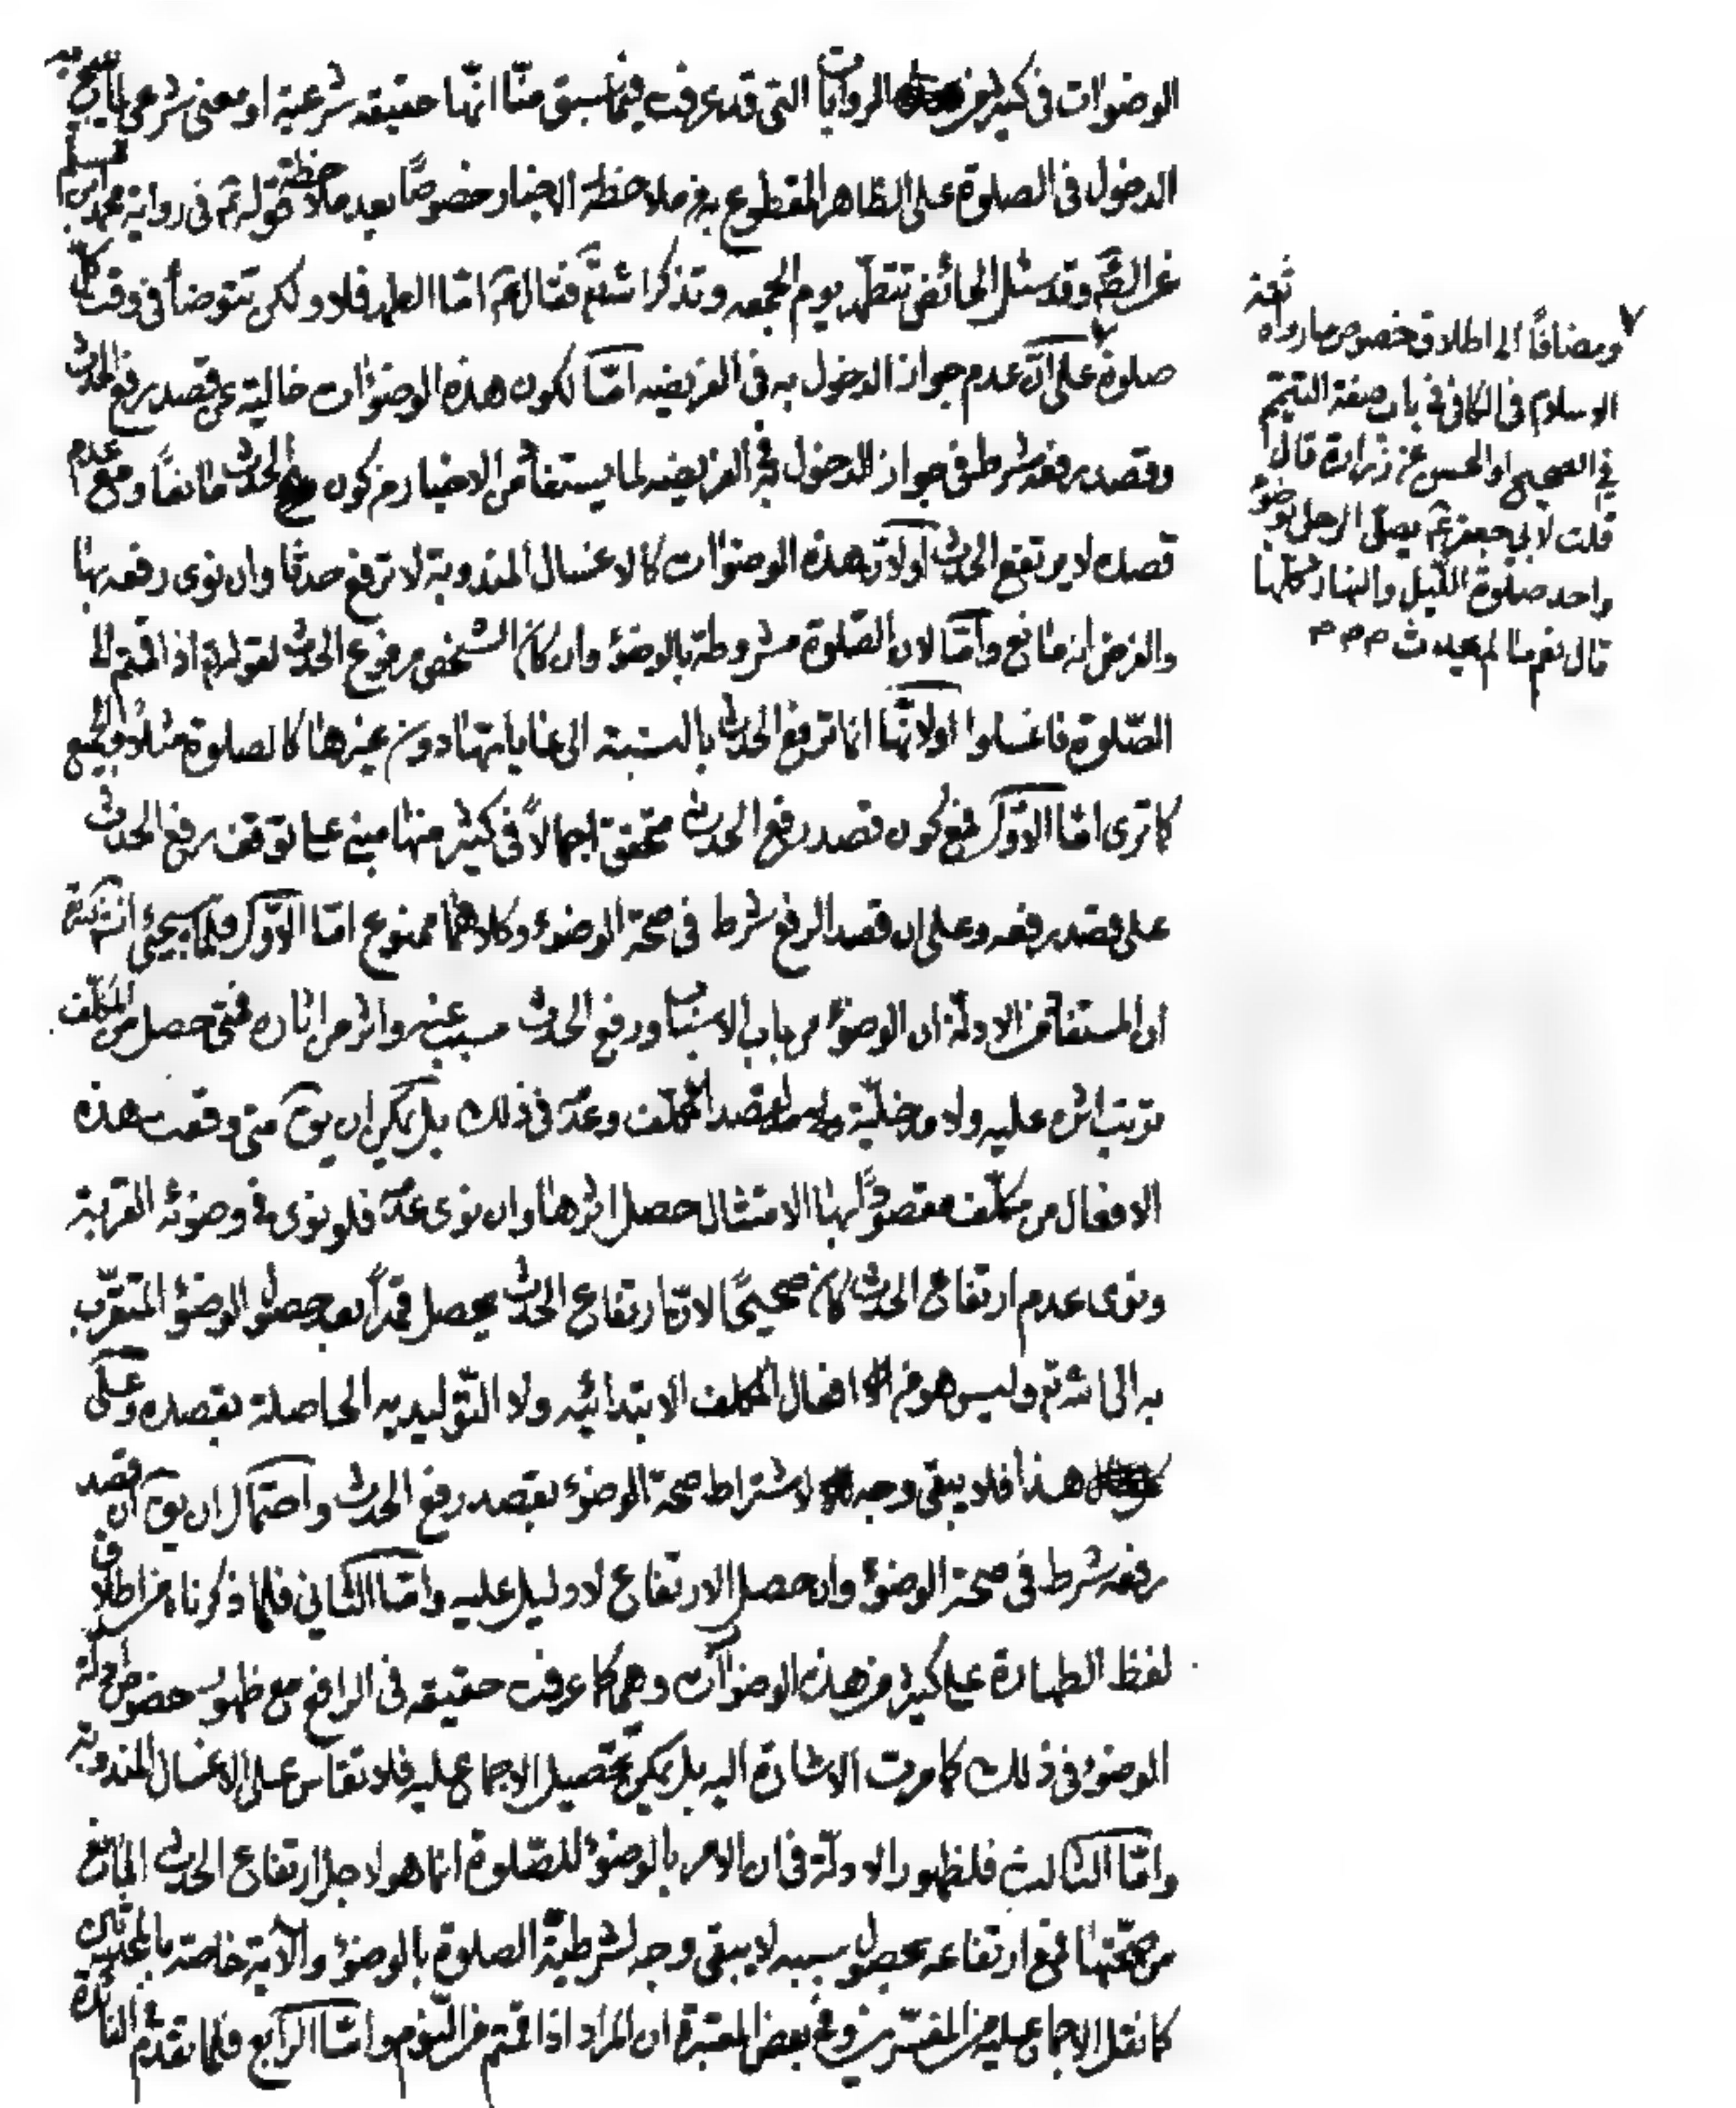 الوضوات في كثير من الروايات التي قد عرفت فيما سبق منّا انّها حقيقه شرعية او معنى شرعي
الدخول في الصلوة على الظاهر المقطوع به من ملاحظة الاخبار خصوصًا بعد ملاحظة قوله ع في رواية محمد بن
عن الصّ وقد سئل الحائض تتطهّر يوم الجمعه وتذكر الله تع فقال ع امّا الطهر فلا ولكن تتوضأ في وقت كل
صلوة على انّ عدم جواز الدخول به في الفريضه امّا لكون هذه الوضوءات خالية عن قصد رفع الحدث
وقصد رفعه شرط في جواز الدخول في الفريضه لما يستفاد من الاخبار من كون الحدث مانعًا ومع عدم
قصده لا يرتفع الحدث اولانّ هذه الوضوات كالاغسال المندوبة لا ترفع حدثا وان نوى رفعه بها
والفرض انه مانع وامّا لان الصّلوة مشروطة بالوضوء وان كان الشخص مرفوع الحدث لقوله تع اذا قمتم الى
الصّلوة فاغسلوا اولانّها انما ترفع الحدث بالنسبة الى غاياتها دون غيرها كالصلوة مثلا والجميع
كما ترى امّا الاوّل فمع كون قصد رفع الحدث متحقق اجمالاً في كثير منها مبني على توقف رفع الحدث
على قصد رفعه وعلى ان قصد الرفع شرط في صحّة الوضوء وكلاهما ممنوع امّا الاوّل فلما سيجئ انش
ان المستفاد من الادلّة ان الوضوء من باب الاسباب ورفع الحدث مسبب عنه واثر من اثاره فمتى حصل من المكلّف
ترتب اثره عليه ولا مدخليّة لقصد المكلّف وعدمه في ذلك بل يمكن ان يق متى وقعت هذه
الافعال من مكلّف مقصودًا بها الامتثال حصل اثرها وان نوى عدمه فلو نوى في وضوئه القربة
ونوى عدم ارتفاع الحدث كان صحيحًا لانّ ارتفاع الحدث يحصل قهراً بعد حصول الوضوء المتقرّب
به الى الله تع وليس هو من افعال المكلف الابتدائيّه ولا التّوليديه الحاصلة بقصده وعلى
هذا فلا يبقى وجه لاشتراط صحّة الوضوء بقصد رفع الحدث واحتمال ان يق ان قصد
رفعه شرط في صحّة الوضوء وان حصل الارتفاع لا دليل عليه وامّا الثاني فلما ذكرنا من اطلاق
لفظ الطهارة على كثير من هذه الوضوآت وهي كما عرفت حقيقه في الرافع مع ظهور خصوص ادلّة
الوضوء في ذلك كما مرت الاشارة اليه بل يمكن تحصيل الاجماع عليه فلا تقاس على الاغسال المندوبة
وامّا الثالث فلظهور الادلّة في ان الامر بالوضوء للصّلوة انما هو لاجل ارتفاع الحدث المانع
من صحّتها فمع ارتفاعه بحصول سببه لا يبقى وجه لشرطيّة الصلوة بالوضوء والآية خاصّة بالمحدثين
كما نقل الاجماع عليه من المفسّرين وفي بعض المعتبرة ان المراد اذا قمتم من النّوم وامّا الرّابع فلما تقدّم
ومضافًا الى اطلاق خصوص ما رواه ثقة
الاسلام في الكافي في باب صفة التيمّم
في الصحيح او الحسن عن زرارة قال
قلت لابي جعفر ع يصلّي الرجل بوضوء
واحد صلوة اللّيل والنهار كلّها
قال نعم ما لم يحدث م م م